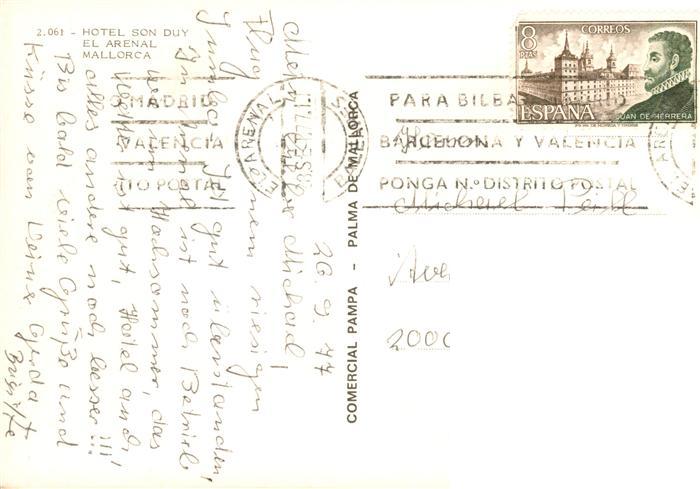 2.061 - HOTEL SON DUY
EL ARENAL
MALLORCA
26.9.77
Mein lieber Michael,
Flug einem riesigen
Jumbo, gut überstanden,
Im Hotel ist noch Betrieb
wie im Hochsommer, das
Wetter ist gut, Hotel auch,
alles andere noch besser!!!
Bis bald viele Grüße und
Küsse von Deine Gerda
Brigitte
COMERCIAL PAMPA - PALMA DE MALLORCA
MADRID
VALENCIA
POSTAL
EL ARENAL
PARA BILBAO
BARCELONA Y VALENCIA
PONGA N.º DISTRITO POSTAL
8
PTAS
CORREOS
ESPAÑA
JUAN DE HERRERA
Michael
2000